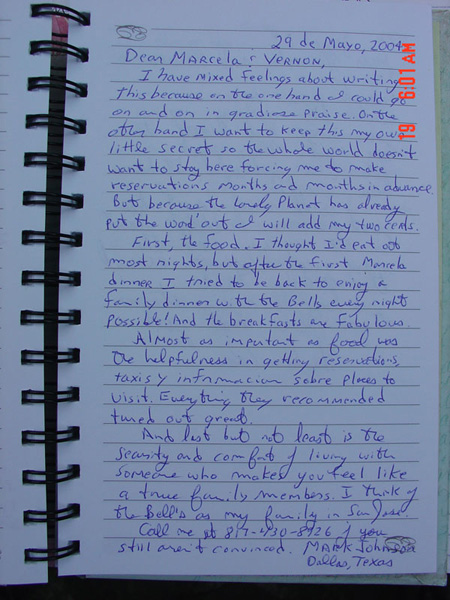 29 de Mayo, 2004
Dear Marcela & Vernon,
I have mixed feelings about writing
this because on the one hand I could go
on and on in gradiose praise. On the
other hand I want to keep this my own
little secret so the whole world doesn't
want to stay here forcing me to make
reservations months and months in advance.
But because the lonely Planet has already
put the word out I will add my two cents.
First, the food. I thought I'd eat out
most nights, but after the first Marcela
dinner I tried to be back to enjoy a
family dinner with the Bells every night
possible! And the breakfasts are fabulous.
Almost as important as food was
the helpfulness in getting reservations,
taxis y informacion sobre places to
visit. Everything they recommended
turned out great.
And last but not least is the
security and comfort of living with
someone who makes you feel like
a true family members. I think of
the Bell's as my family in San Jose.
Call me at 817-430-8926 if you
still aren't convinced. Mark Johnson
Dallas, Texas
19 6:01 AM